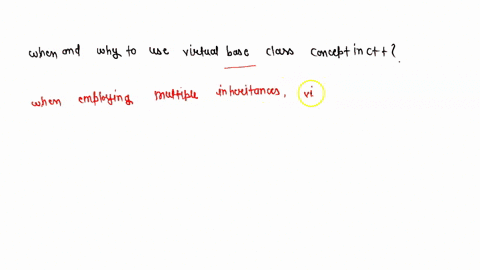 when and why to use virtual base class concept in c++?
when employing multiple inheritances, vi